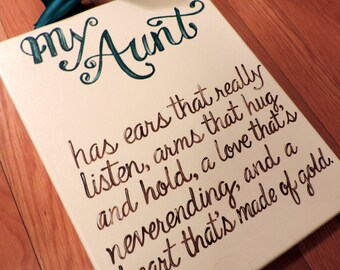 My Aunt
has ears that really
listen, arms that hug
and hold, a love that's
neverending, and a
heart that's made of gold.